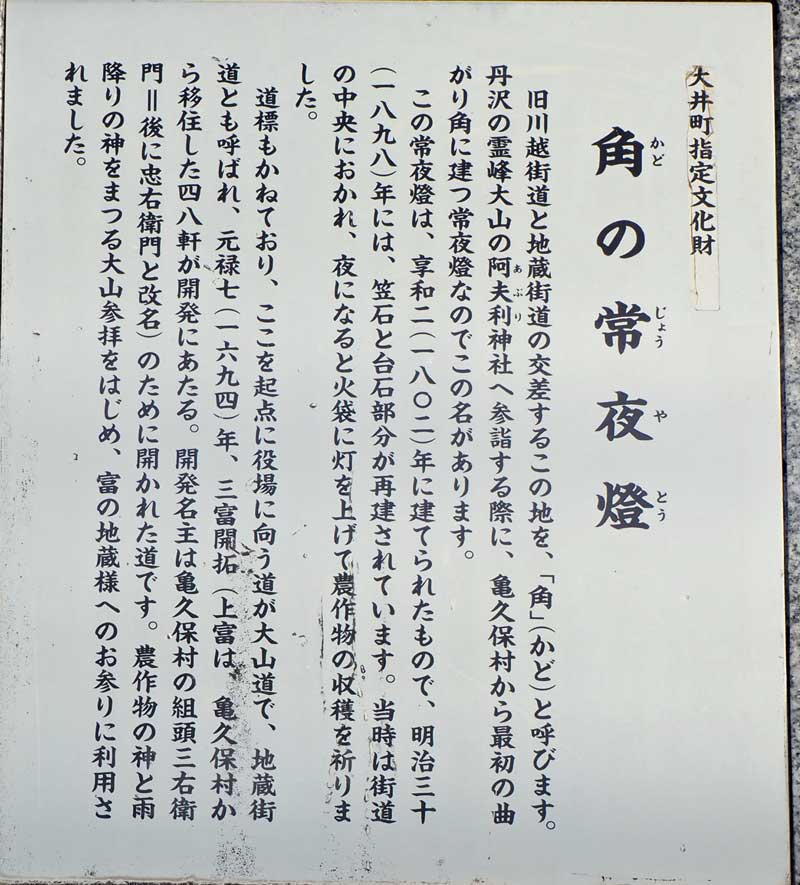 大井町指定文化財
角の常夜燈
かど じょう や とう
旧川越街道と地蔵街道の交差するこの地を、「角」(かど)と呼びます。
丹沢の霊峰大山の阿夫利神社へ参詣する際に、亀久保村から最初の曲
あぶり
がり角に建つ常夜燈なのでこの名があります。
この常夜燈は、享和二(一八〇二)年に建てられたもので、明治三十
(一八九八)年には、笠石と台石部分が再建されています。当時は街道
の中央におかれ、夜になると火袋に灯を上げて農作物の収穫を祈りま
した。
道標もかねており、ここを起点に役場に向う道が大山道で、地蔵街
道とも呼ばれ、元禄七(一六九四)年、三富開拓(上富は、亀久保村か
ら移住した四八軒が開発にあたる。開発名主は亀久保村の組頭三右衛
門＝後に忠右衛門と改名)のために開かれた道です。農作物の神と雨
降りの神をまつる大山参拝をはじめ、富の地蔵様へのお参りに利用さ
れました。